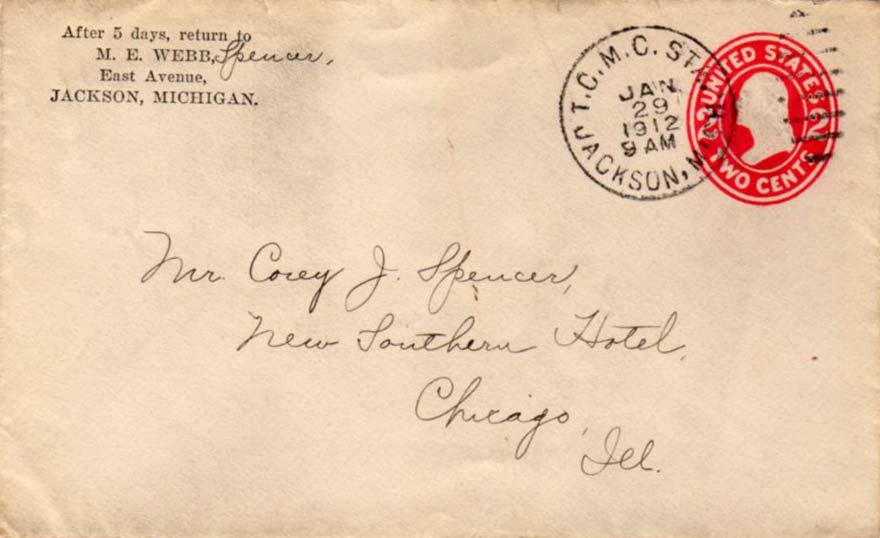 After 5 days, return to
M. E. WEBB, Spencer,
East Avenue,
JACKSON, MICHIGAN.
T.C.M.C. STA.
JAN
29
1912
9 AM
JACKSON, MICH
UNITED STATES
2 2
TWO CENTS
Mr. Corey J. Spencer,
New Southern Hotel,
Chicago,
Ill.